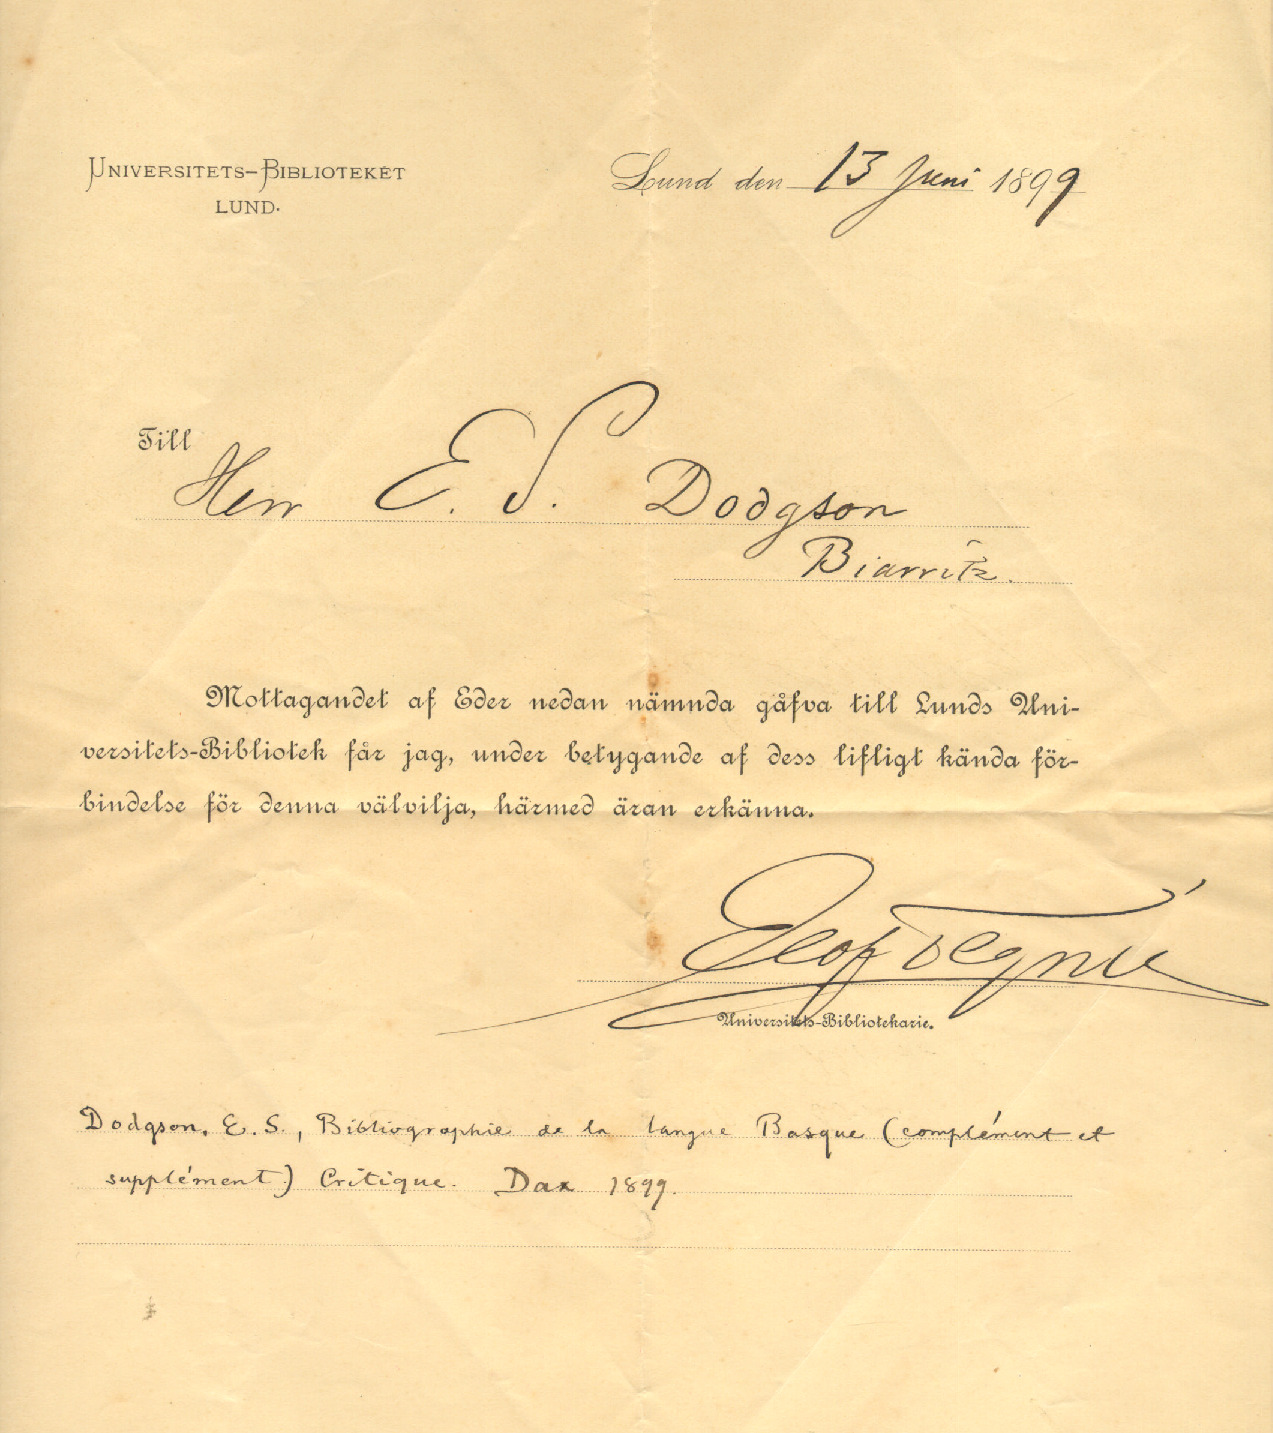 UNIVERSITETS-BIBLIOTEKET
LUND.
Lund den 13 Juni 1899
Till
Herr E. S. Dodgson
Biarritz.
Mottagandet af Eder nedan nämnda gåfva till Lunds Uni-
versitets-Bibliotek får jag, under betygande af dess lifligt kända för-
bindelse för denna välvilja, härmed äran erkänna.
Elof Tegnér
Universitets-Bibliotekarie.
Dodgson, E. S., Bibliographie de la langue Basque (complément et
supplément) Critique. Dax 1899.